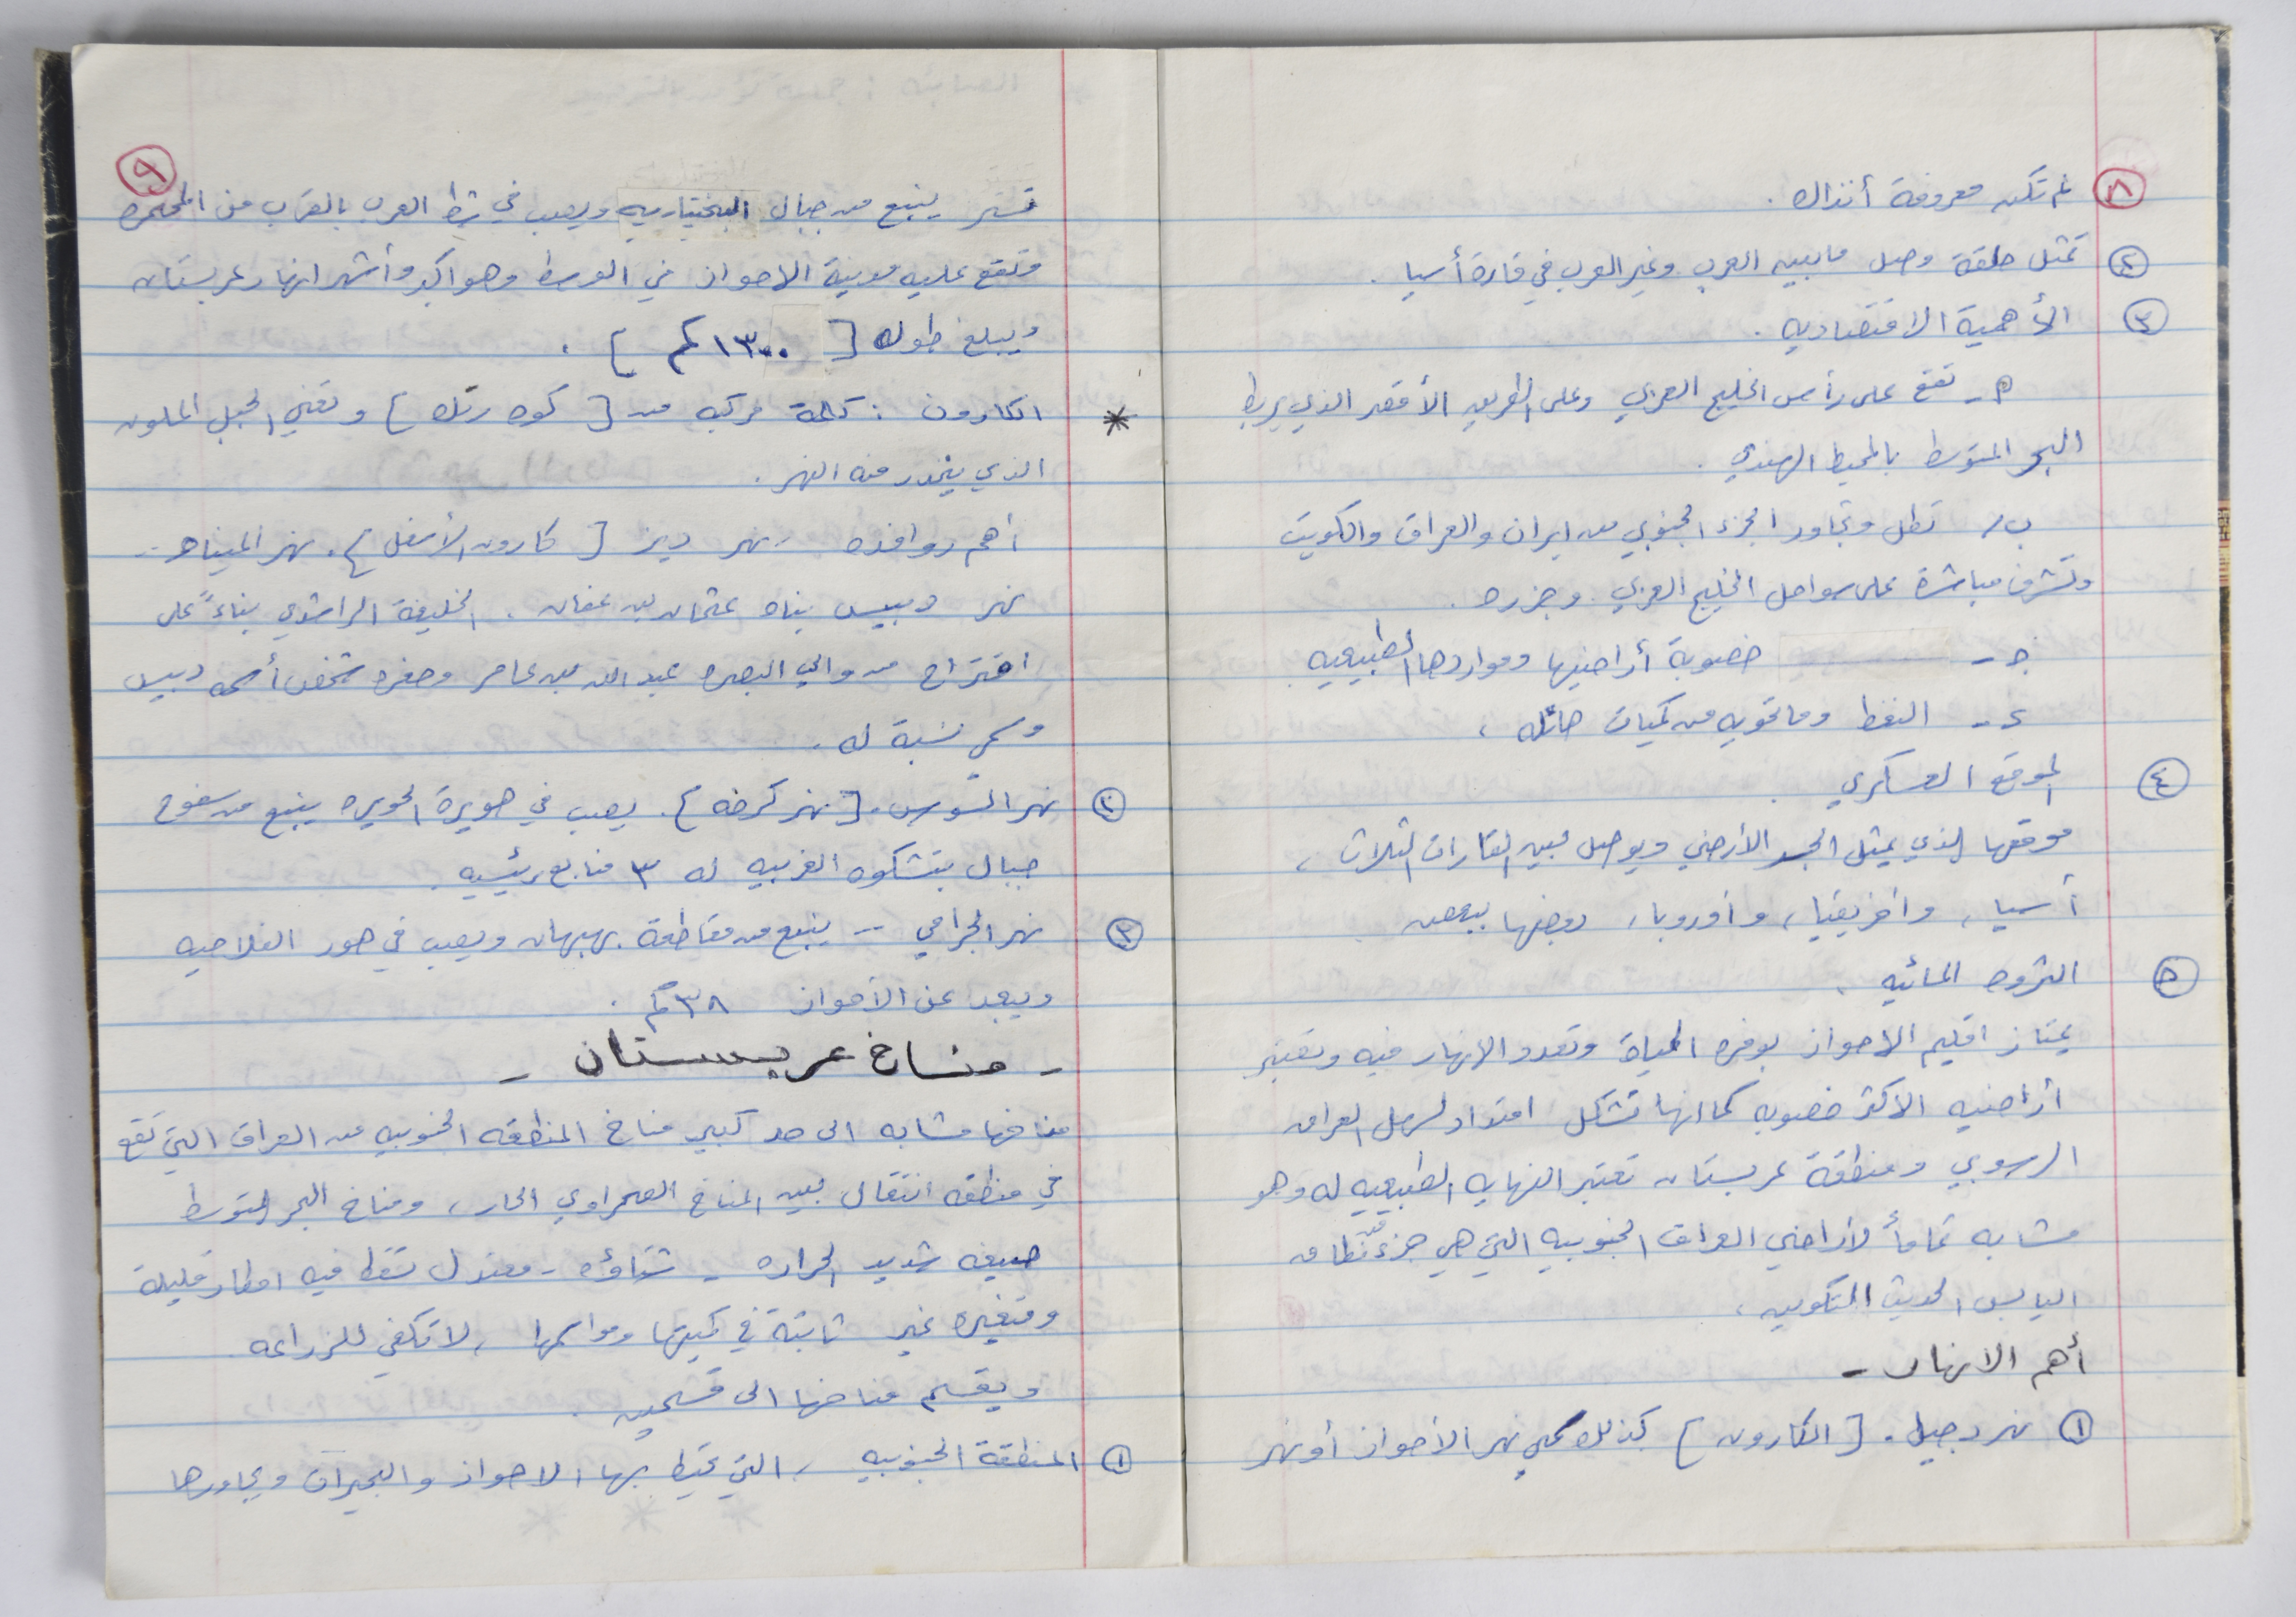 ٨
لم تكن معروفة أنذاك .
٢ تمثل حلقة وصل مابين العرب وغير العرب في قارة أسيا .
٣ الأهمية الاقتصاديه .
٩ - تقع على رأس الخليج العربي وعلى الطريق الأقصر الذي يربط
البحر المتوسط بالمحيط الهندي .
ب / تطل وتجاور الجزء الجنوبي من ايران والعراق والكويت
وتشرف مباشرة على سواحل الخليج العربي وجزره .
جـ - خصوبة أراضيها ومواردها الطبيعيه .
د - النفط وماتحويه من كميات هائله ،
٤ الموقع العسكري .
موقعها الذي يمثل الجسر الأرضي ويوصل بين القارات الثلاث ،
أسيا ، وافريقيا ، وأوروبا ، بعضها ببعض .
٥ الثروه المائيه .
يمتاز اقليم الاحواز بوفره المياة وتعدد الانهار فيه وتعتبر
أراضيه الاكثر خصوبه كما انها تشكل امتداد لسهل العراق
الرسوبي ومنطقة عربستان تعتبر النهايه الطبيعيه له وهو
مشابه تماماً لأراضي العراق الجنوبيه التي هي جزء من نطاق
اليابس الحديث التكوين ،
أهم الانهار -
١ نهر دجيل . [ الكارون ] كذلك سمي نهر الأحواز أو نهر
٩
تستر ينبع من جبال البختياريه ويصب في شط العرب بالقرب من المحمره
وتقع عليه مدينة الاحواز في الوسط وهو اكبر وأشهر انهار عربستان
ويبلغ طوله [ ١٣٠٠ كم ] .
* الكارون : كلمة مركبه من [ كوه رنك ] وتعني الجبل الملون
الذي ينحدر منه النهر .
أهم روافده - نهر ديز [ كارون الأسفل ] . نهر الميناو -
نهر دبيس بناه عثمان بن عفان . الخليفة الراشدي بناءً على
اقتراح من والي البصره عبد الله بن عامر وحفره شخص أسمه دبيس
وسمي نسبة له .
٢ نهر السوس . [ نهر كرخه ] . يصب في هويرة الحويزه ينبع من سفوح
جبال بشتكوه الغربيه له ٣ منابع رئيسيه .
٣ نهر الجراحي -- ينبع من مقاطعة بهبهان ويصب في هور الفلاحيه
ويبعد عن الأحواز ٣٨ كم .
- مناخ عربستان -
مناخها مشابه الى حد كبير مناخ المنطقه الجنوبيه من العراق التي تقع
في منطقه انتقال بين المناخ الصحراوي الحار ، ومناخ البحر المتوسط
صيفه شديد الحراره - شتاؤه - معتدل تسقط فيه امطار قليلة
ومتغيره غير ثابتة في كميتها ومواسمها ، لا تكفي للزراعه .
ويقسم مناخها الى قسمين .
١ المنطقة الجنوبيه ، التي تحيط بها الاحواز والبحيرات ويجاورها